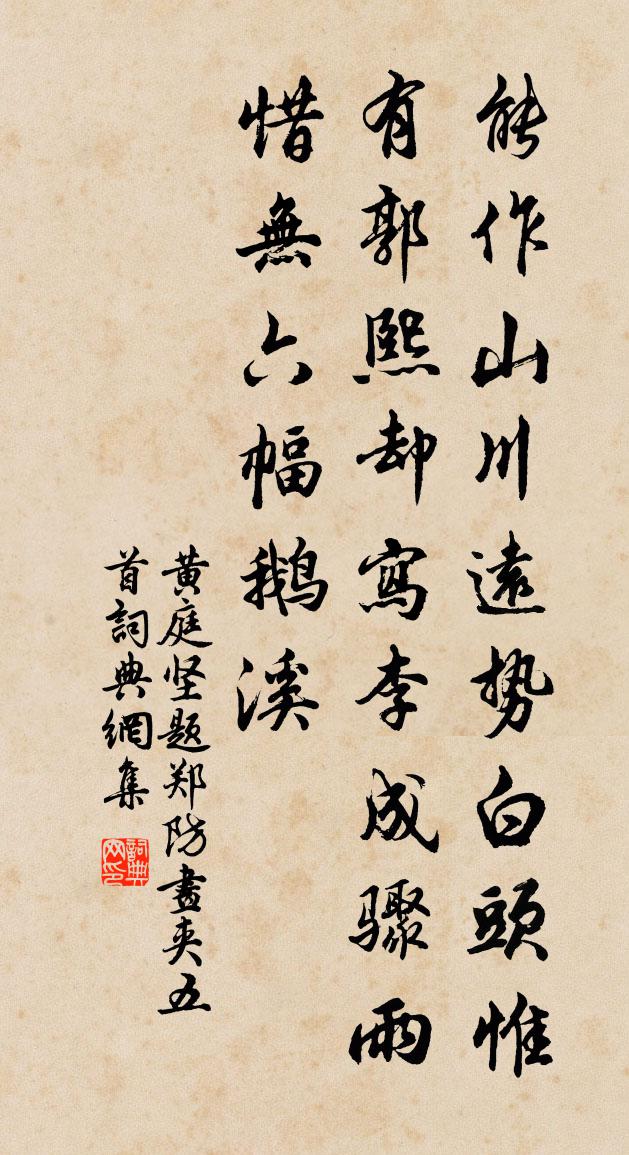 能作山川遠势白頭惟
有郭熙却寫李成骤雨
惜無六幅鹅溪
黄庭坚题郑防畫夹五
首詞典網集
詞典网印